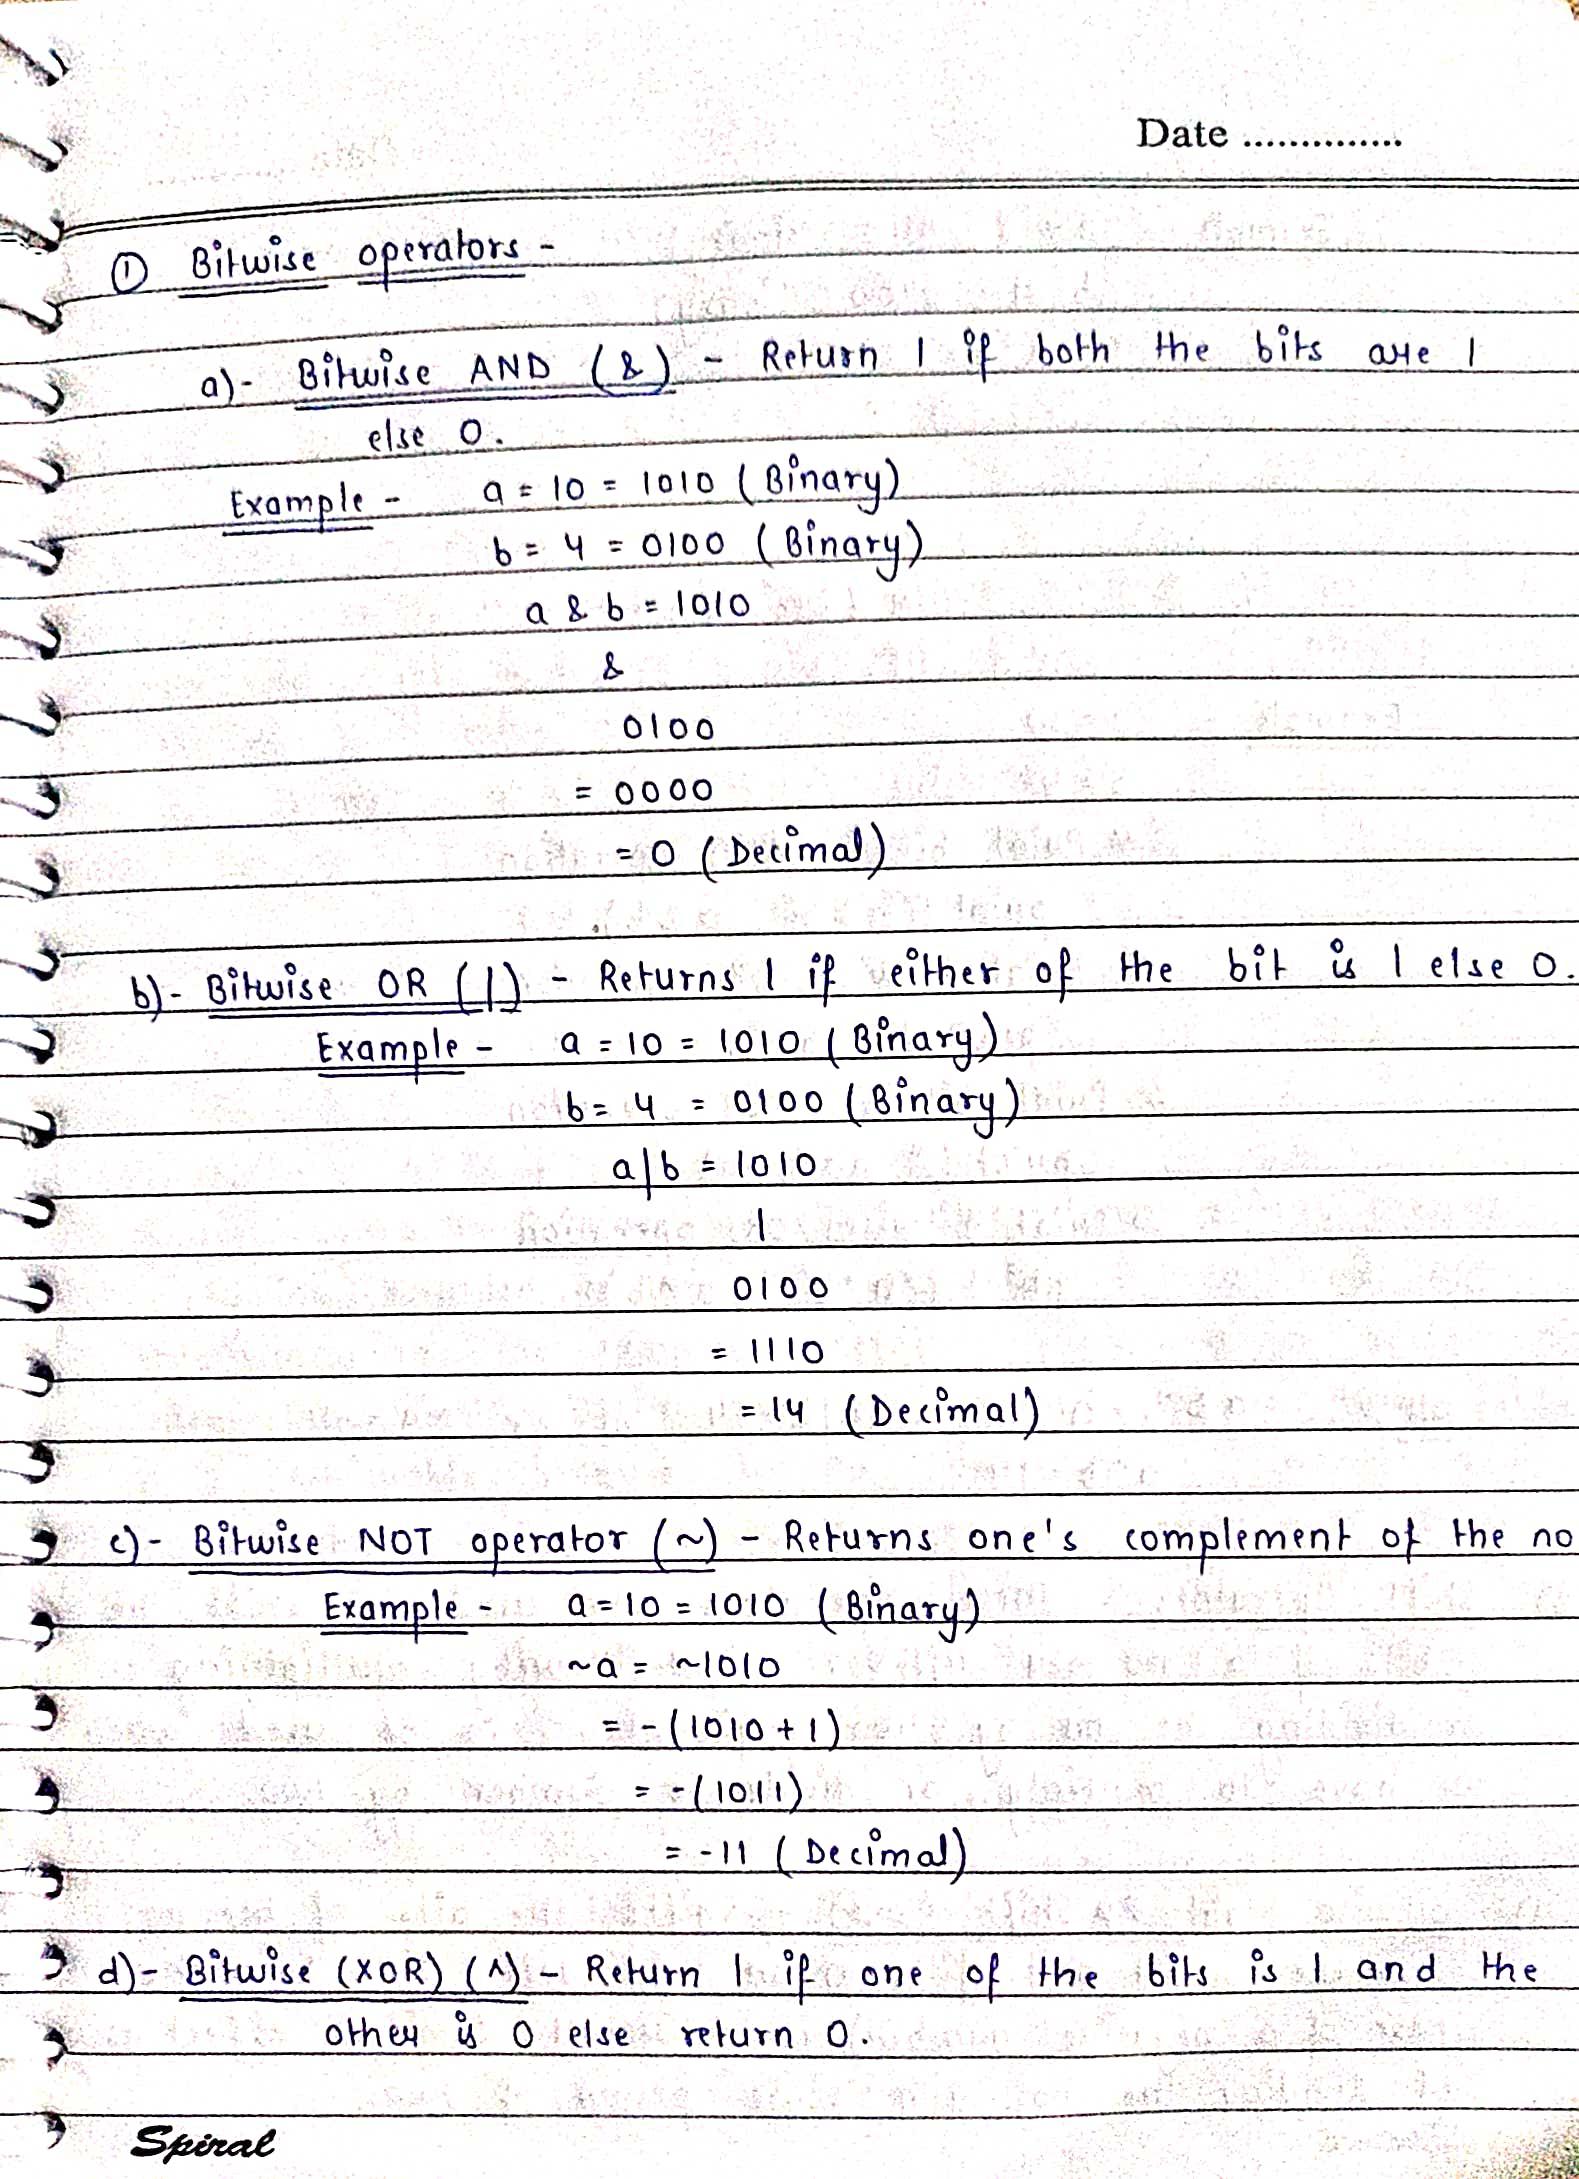 Date ..............
① Bitwise operators -
a)- Bitwise AND (&) - Return 1 if both the bits are 1
else 0.
Example - a = 10 = 1010 (Binary)
b = 4 = 0100 (Binary)
a & b = 1010
&
0100
= 0000
= 0 (Decimal)
b)- Bitwise OR (|) - Returns 1 if either of the bit is 1 else 0.
Example - a = 10 = 1010 (Binary)
b = 4 = 0100 (Binary)
a|b = 1010
|
0100
= 1110
= 14 (Decimal)
c)- Bitwise NOT operator (~) - Returns one's complement of the no
Example - a = 10 = 1010 (Binary)
~a = ~1010
= -(1010 + 1)
= -(1011)
= -11 (Decimal)
d)- Bitwise (XOR) (^) - Return 1 if one of the bits is 1 and the
other is 0 else return 0.
Spiral